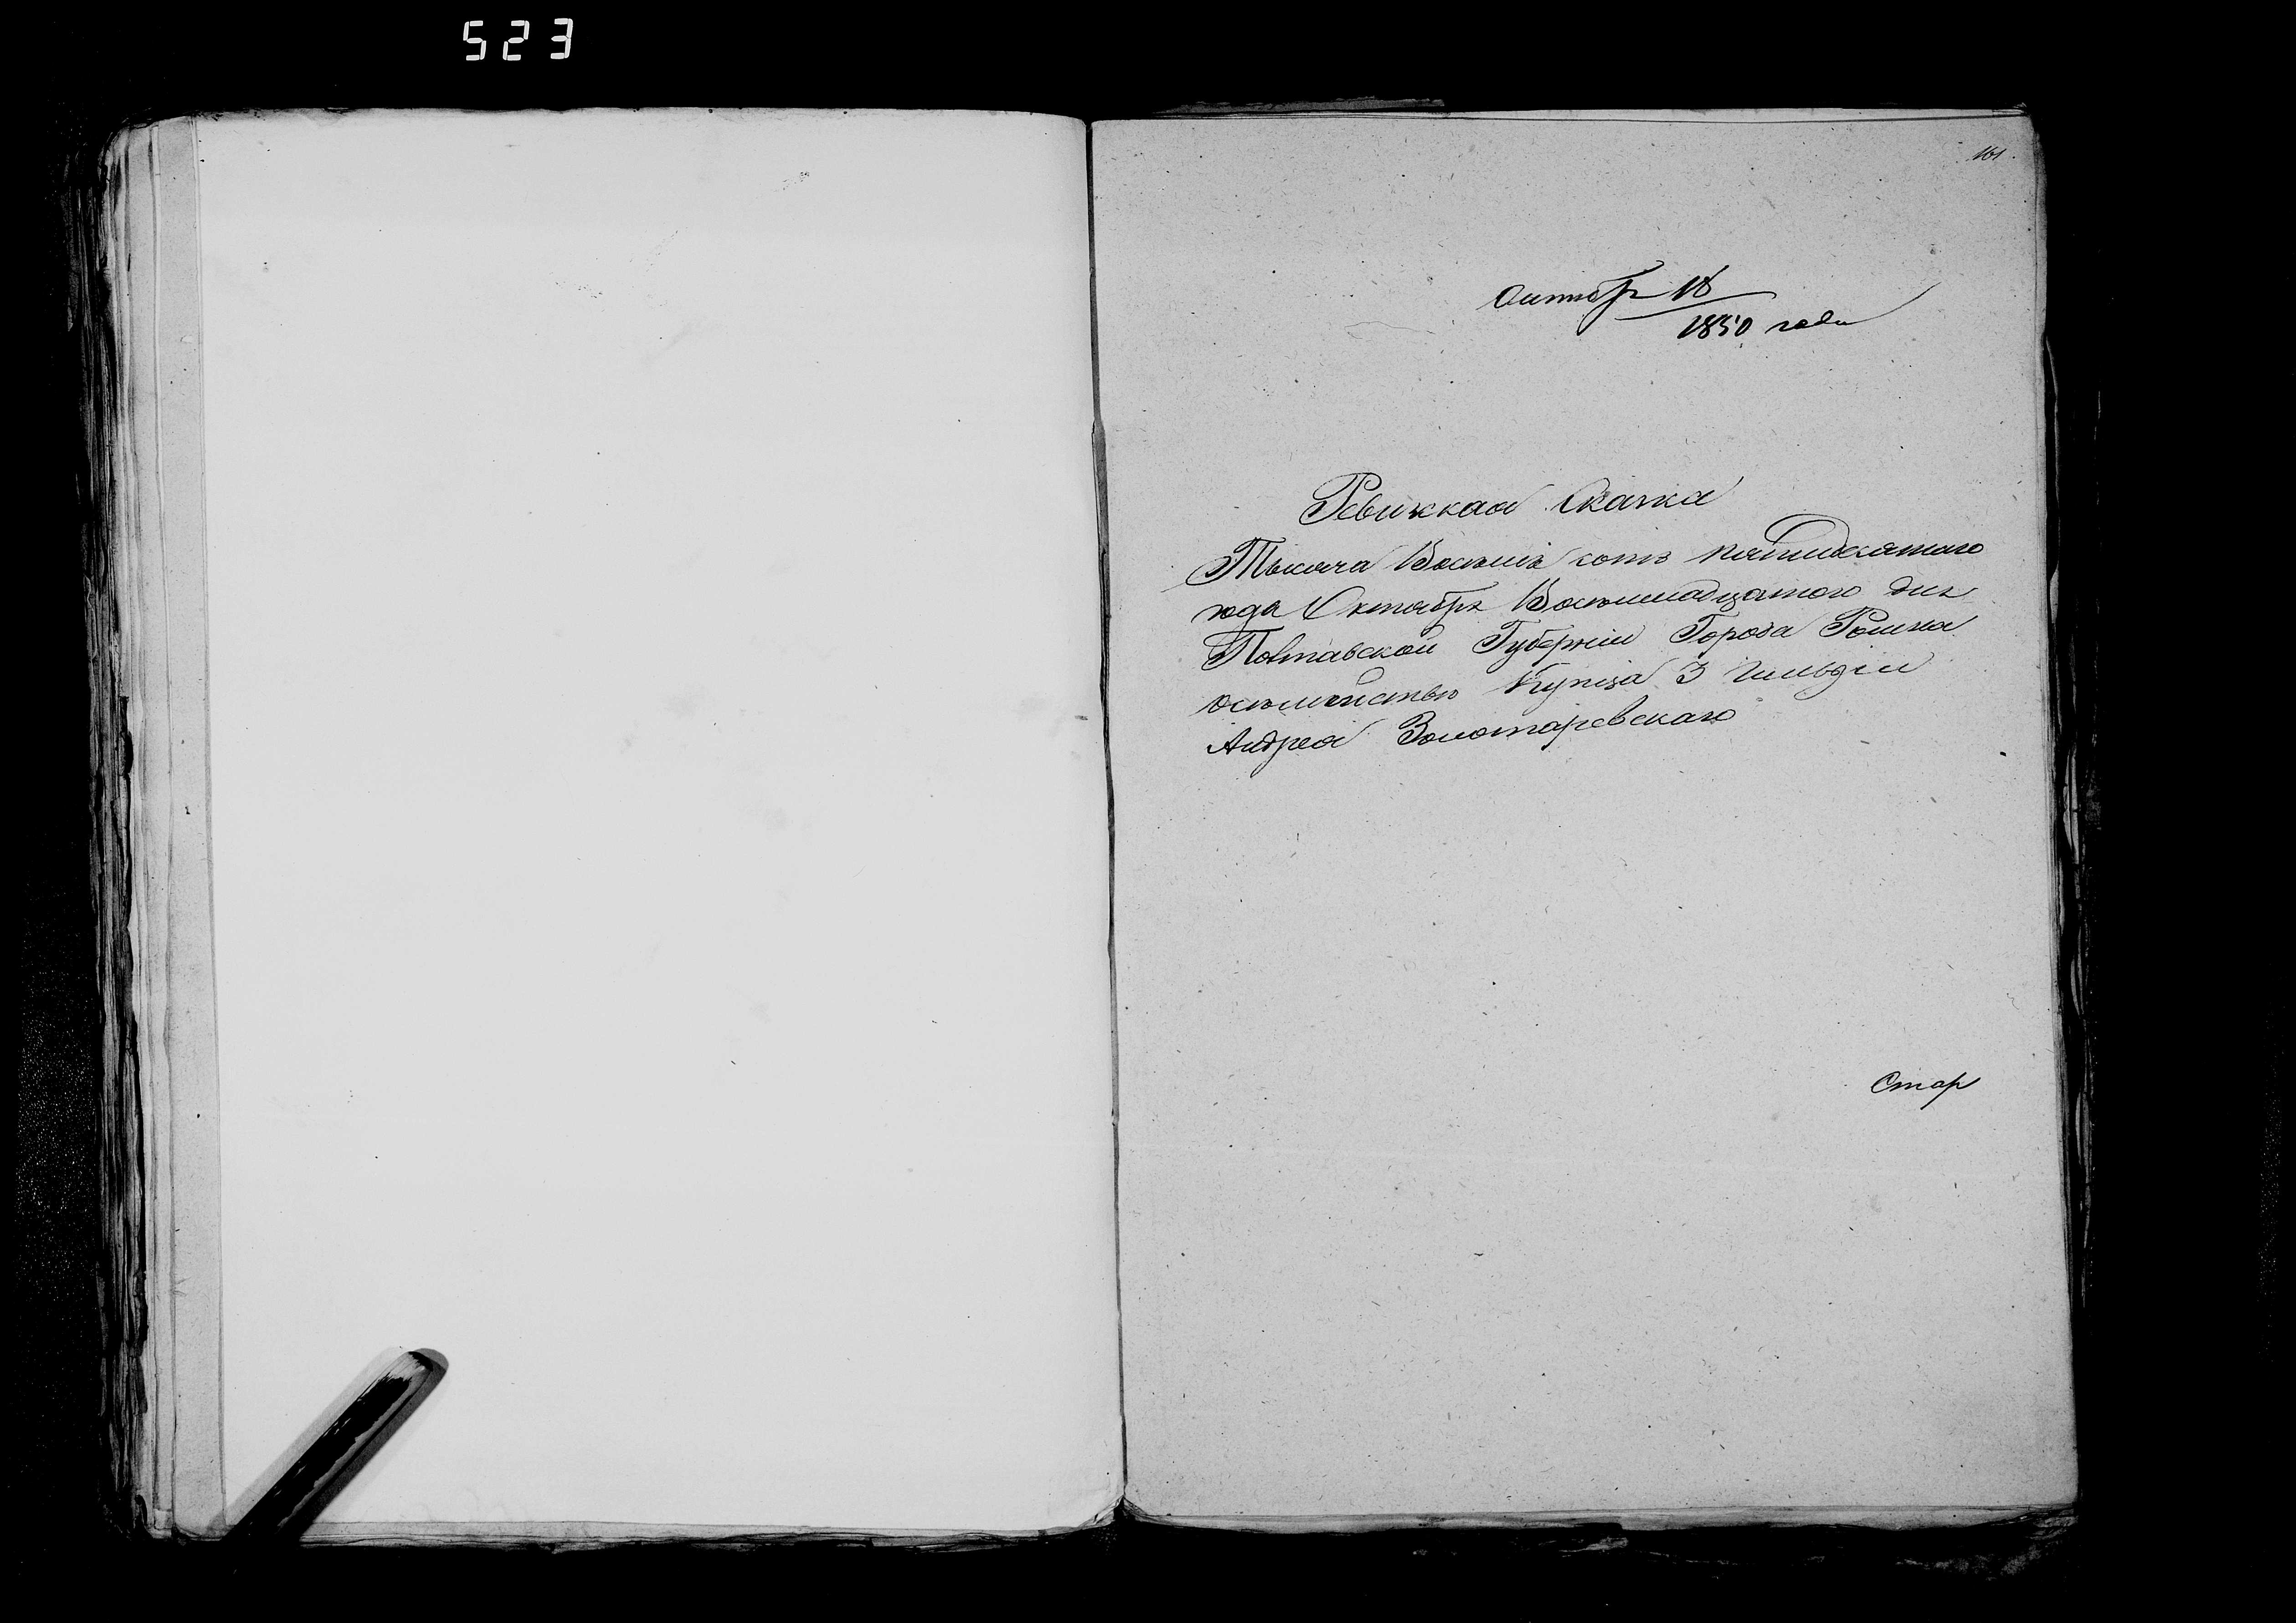 523
161.
Октября 18
1850 года
Ревижская Скаска
Тысяча Восемь сотъ пятидесятаго
года Октября Восемнадцатого дня
Полтавской Губернии Города Ромна
осемействе Купца 3 гильдіи
Андрея Золотаревскаго
Стар